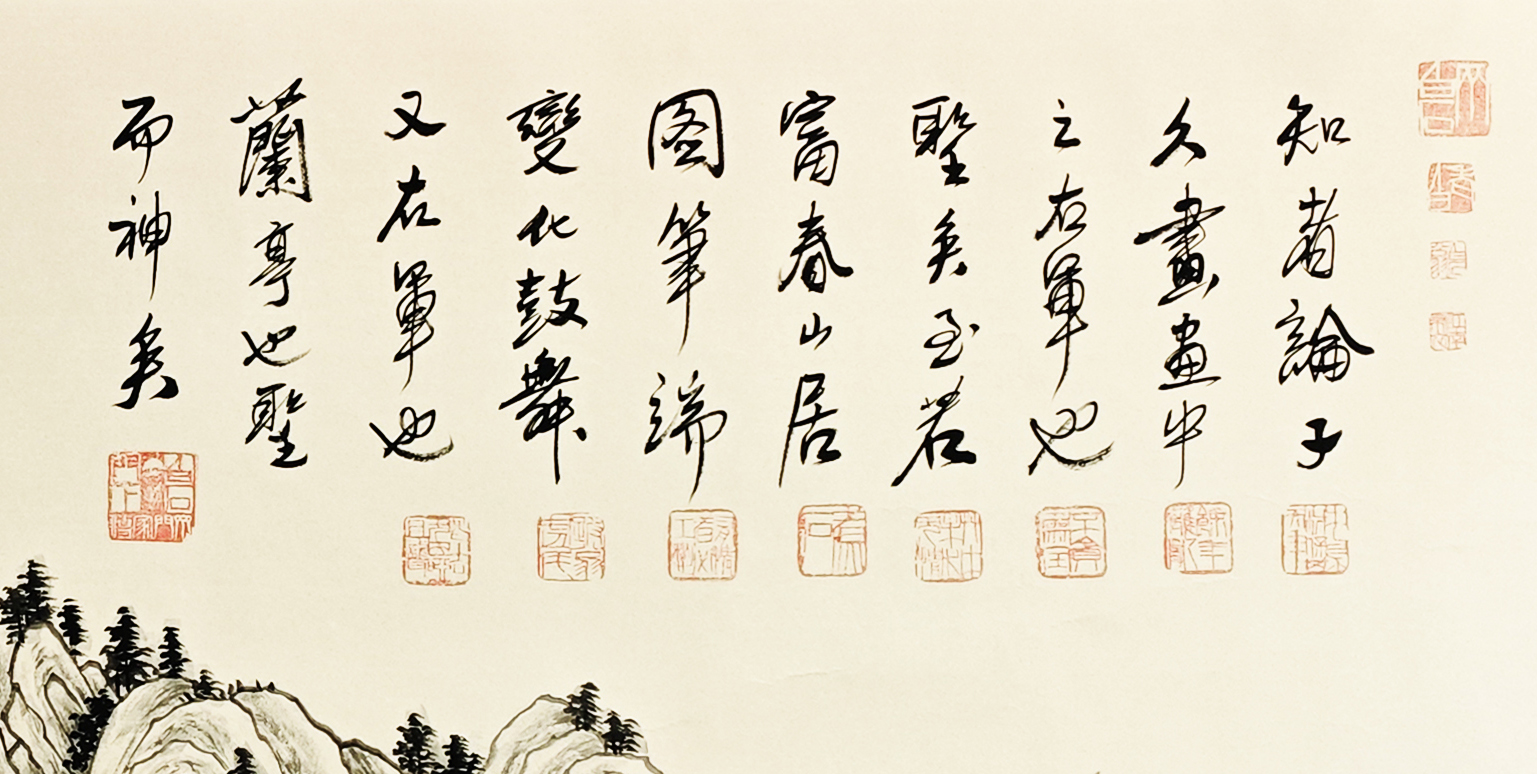 知者論子
久畫畫中
之右軍也
聖矣至若
富春山居
图筆端
變化鼓舞
又右軍也
蘭亭也聖
而神矣